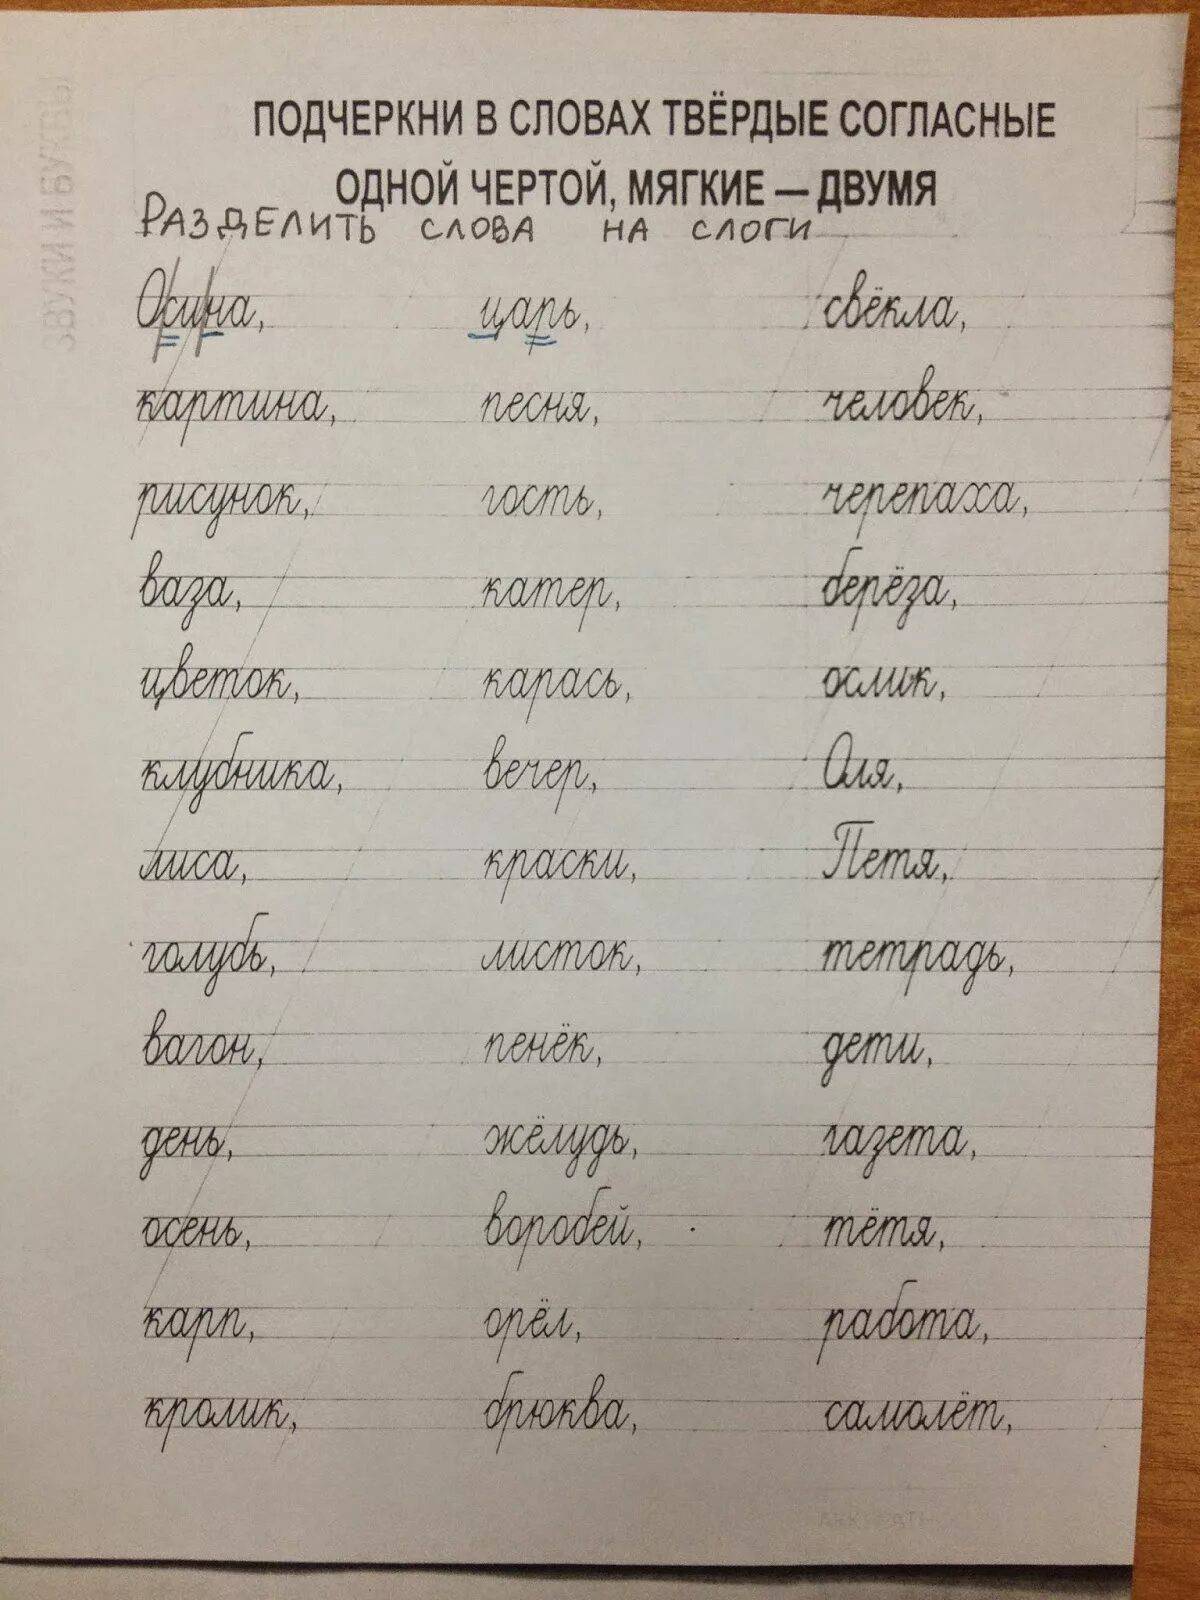 ЗВУКИ И БУКВЫ
ПОДЧЕРКНИ В СЛОВАХ ТВЁРДЫЕ СОГЛАСНЫЕ
ОДНОЙ ЧЕРТОЙ, МЯГКИЕ — ДВУМЯ
РАЗДЕЛИТЬ СЛОВА НА СЛОГИ
Осина, царь, свёкла,
картина, песня, человек,
рисунок, гость, черепаха,
ваза, катер, берёза,
цветок, карась, ослик,
клубника, вечер, Оля,
лиса, краски, Петя,
голубь, листок, тетрадь,
вагон, пенёк, дети,
день, жёлудь, газета,
осень, воробей, тётя,
карп, орёл, работа,
кролик, брюква, самолёт,